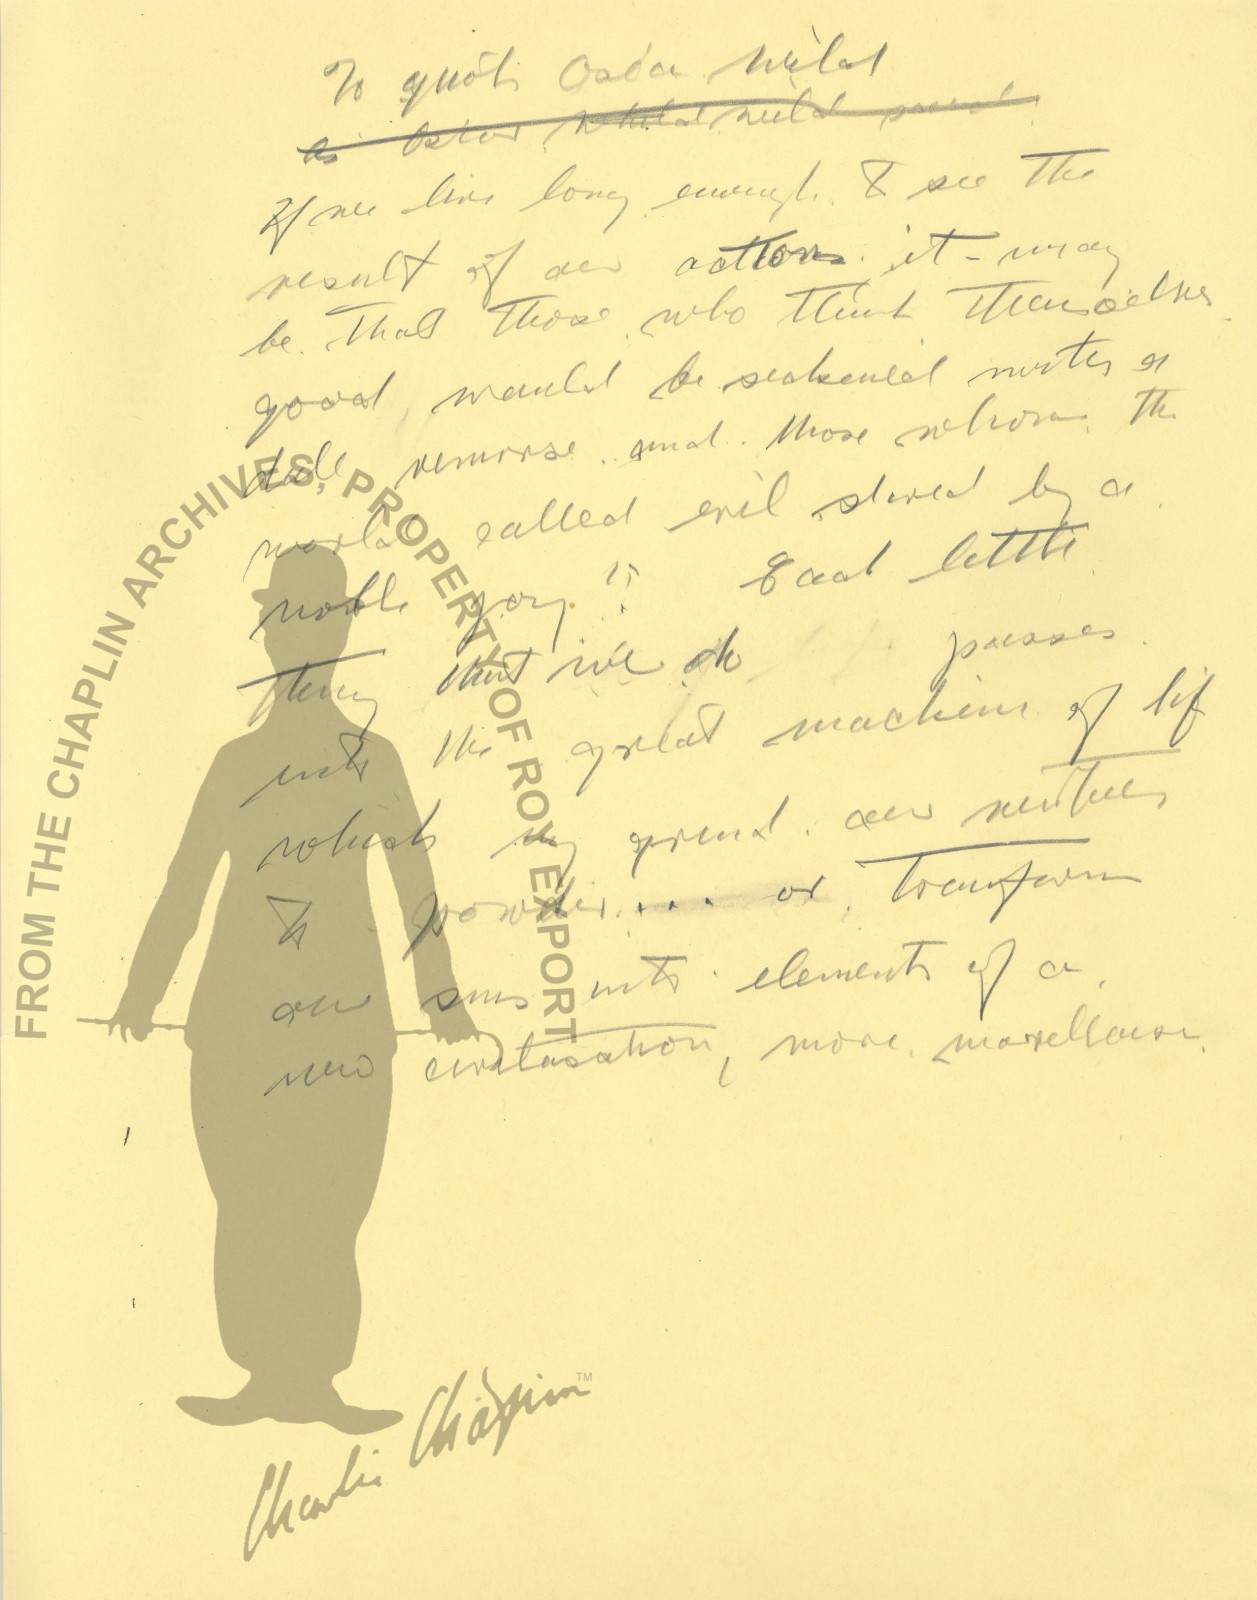 To quote Oscar Wild
as Oscar Wild said
If we live long enough to see the
result of our actions it may
be that those who think themselves
good would be sickened with a
dull remorse and those whom the
world called evil stired by a
noble joy."
Each little
thing that we do passes
into the great machine of lif
which my grind our virtues
to powder.... or transform
our sins into elements of a
new civilasation, more marvellous
FROM THE CHAPLIN ARCHIVES, PROPERTY OF ROY EXPORT
Charlie Chaplin™